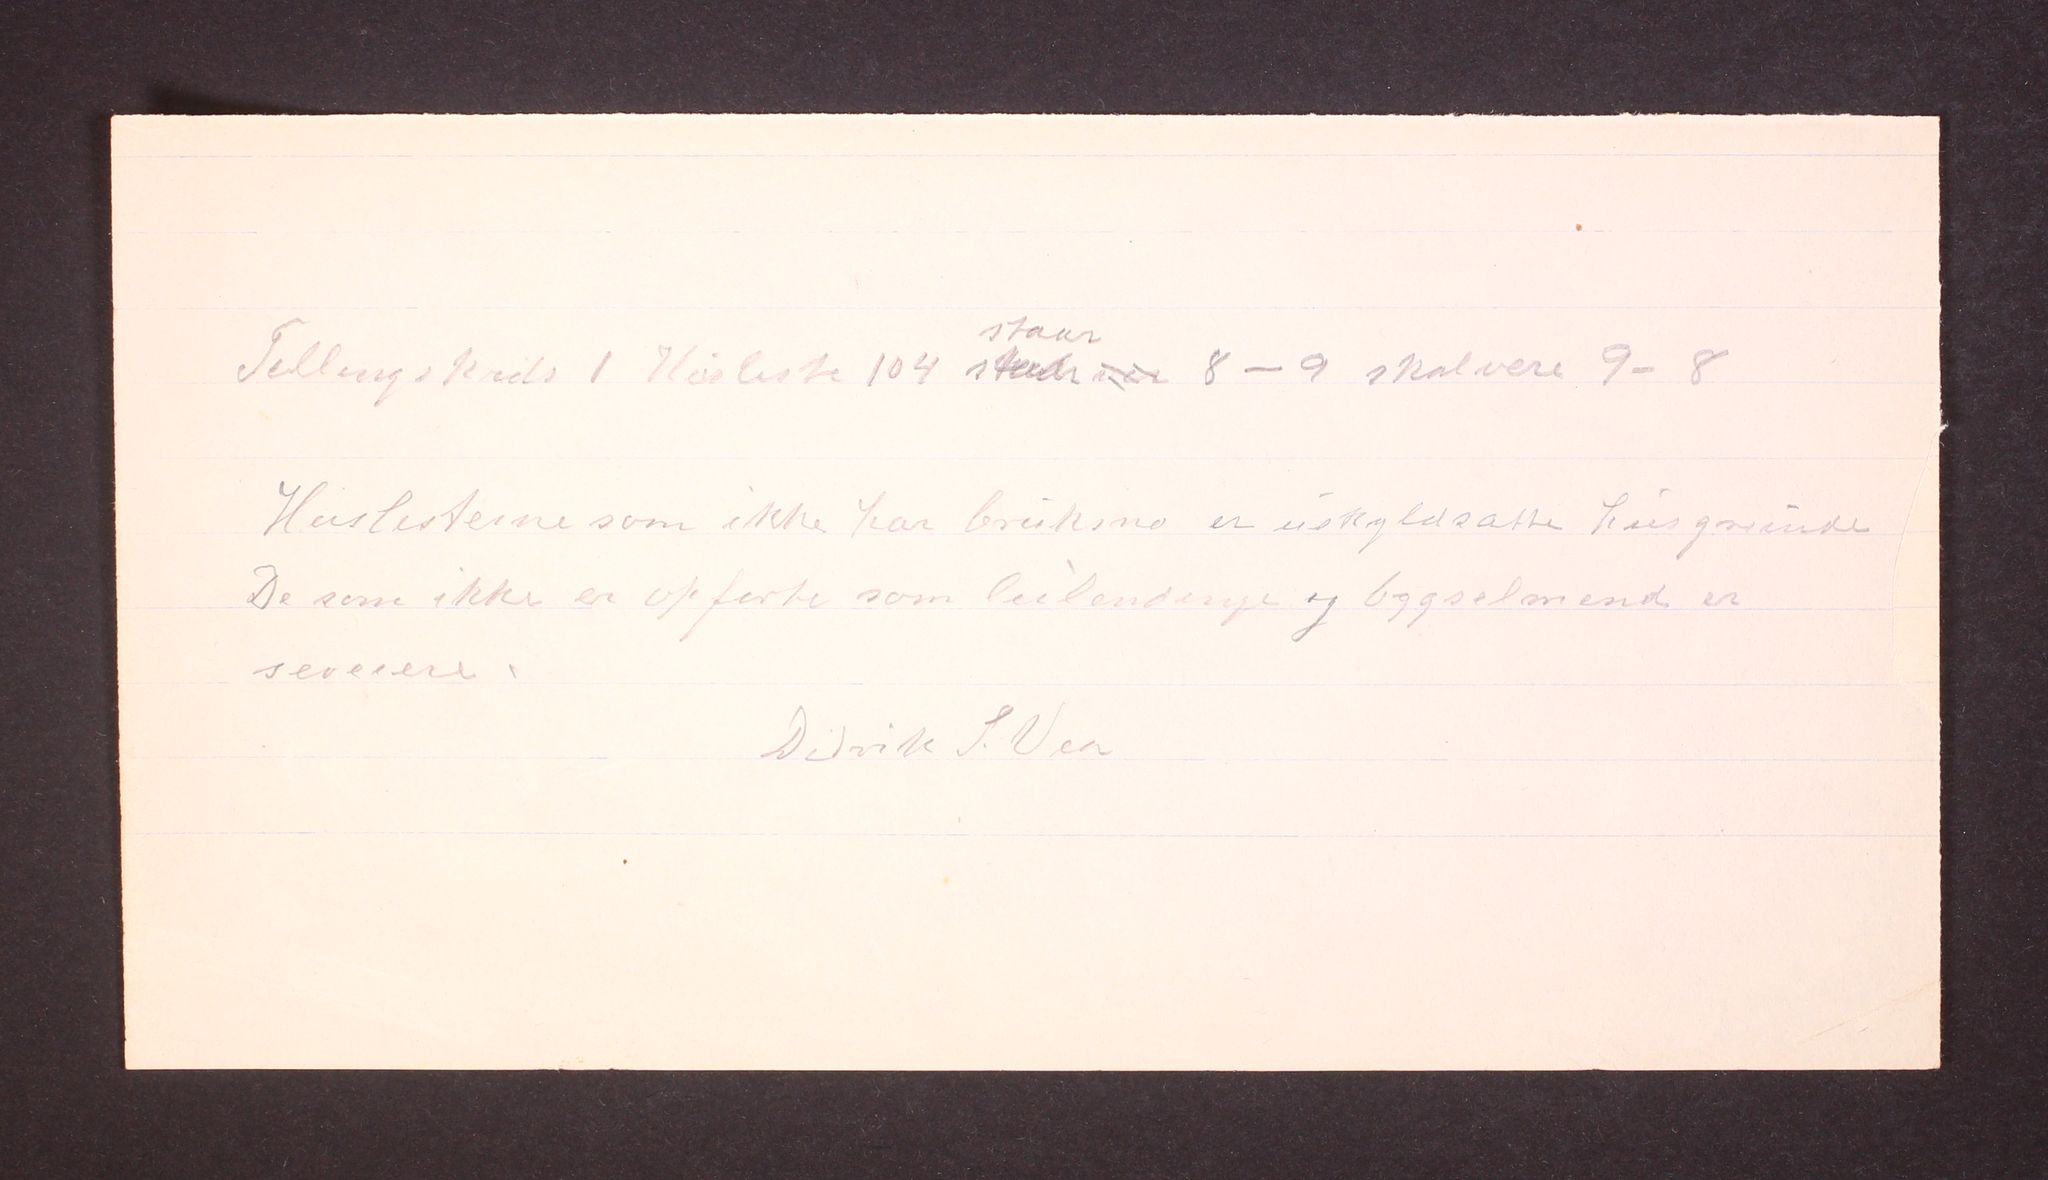 staar
Tellingskrids 1 Husliste 104 8 – 9 skal vere 9 – 8
Huslisterne som ikke har bruksno er uskyldsatte husgrunde
De som ikke er opførte som leilendinge og bygselmend er
seveiere.
Didrik S. Vea